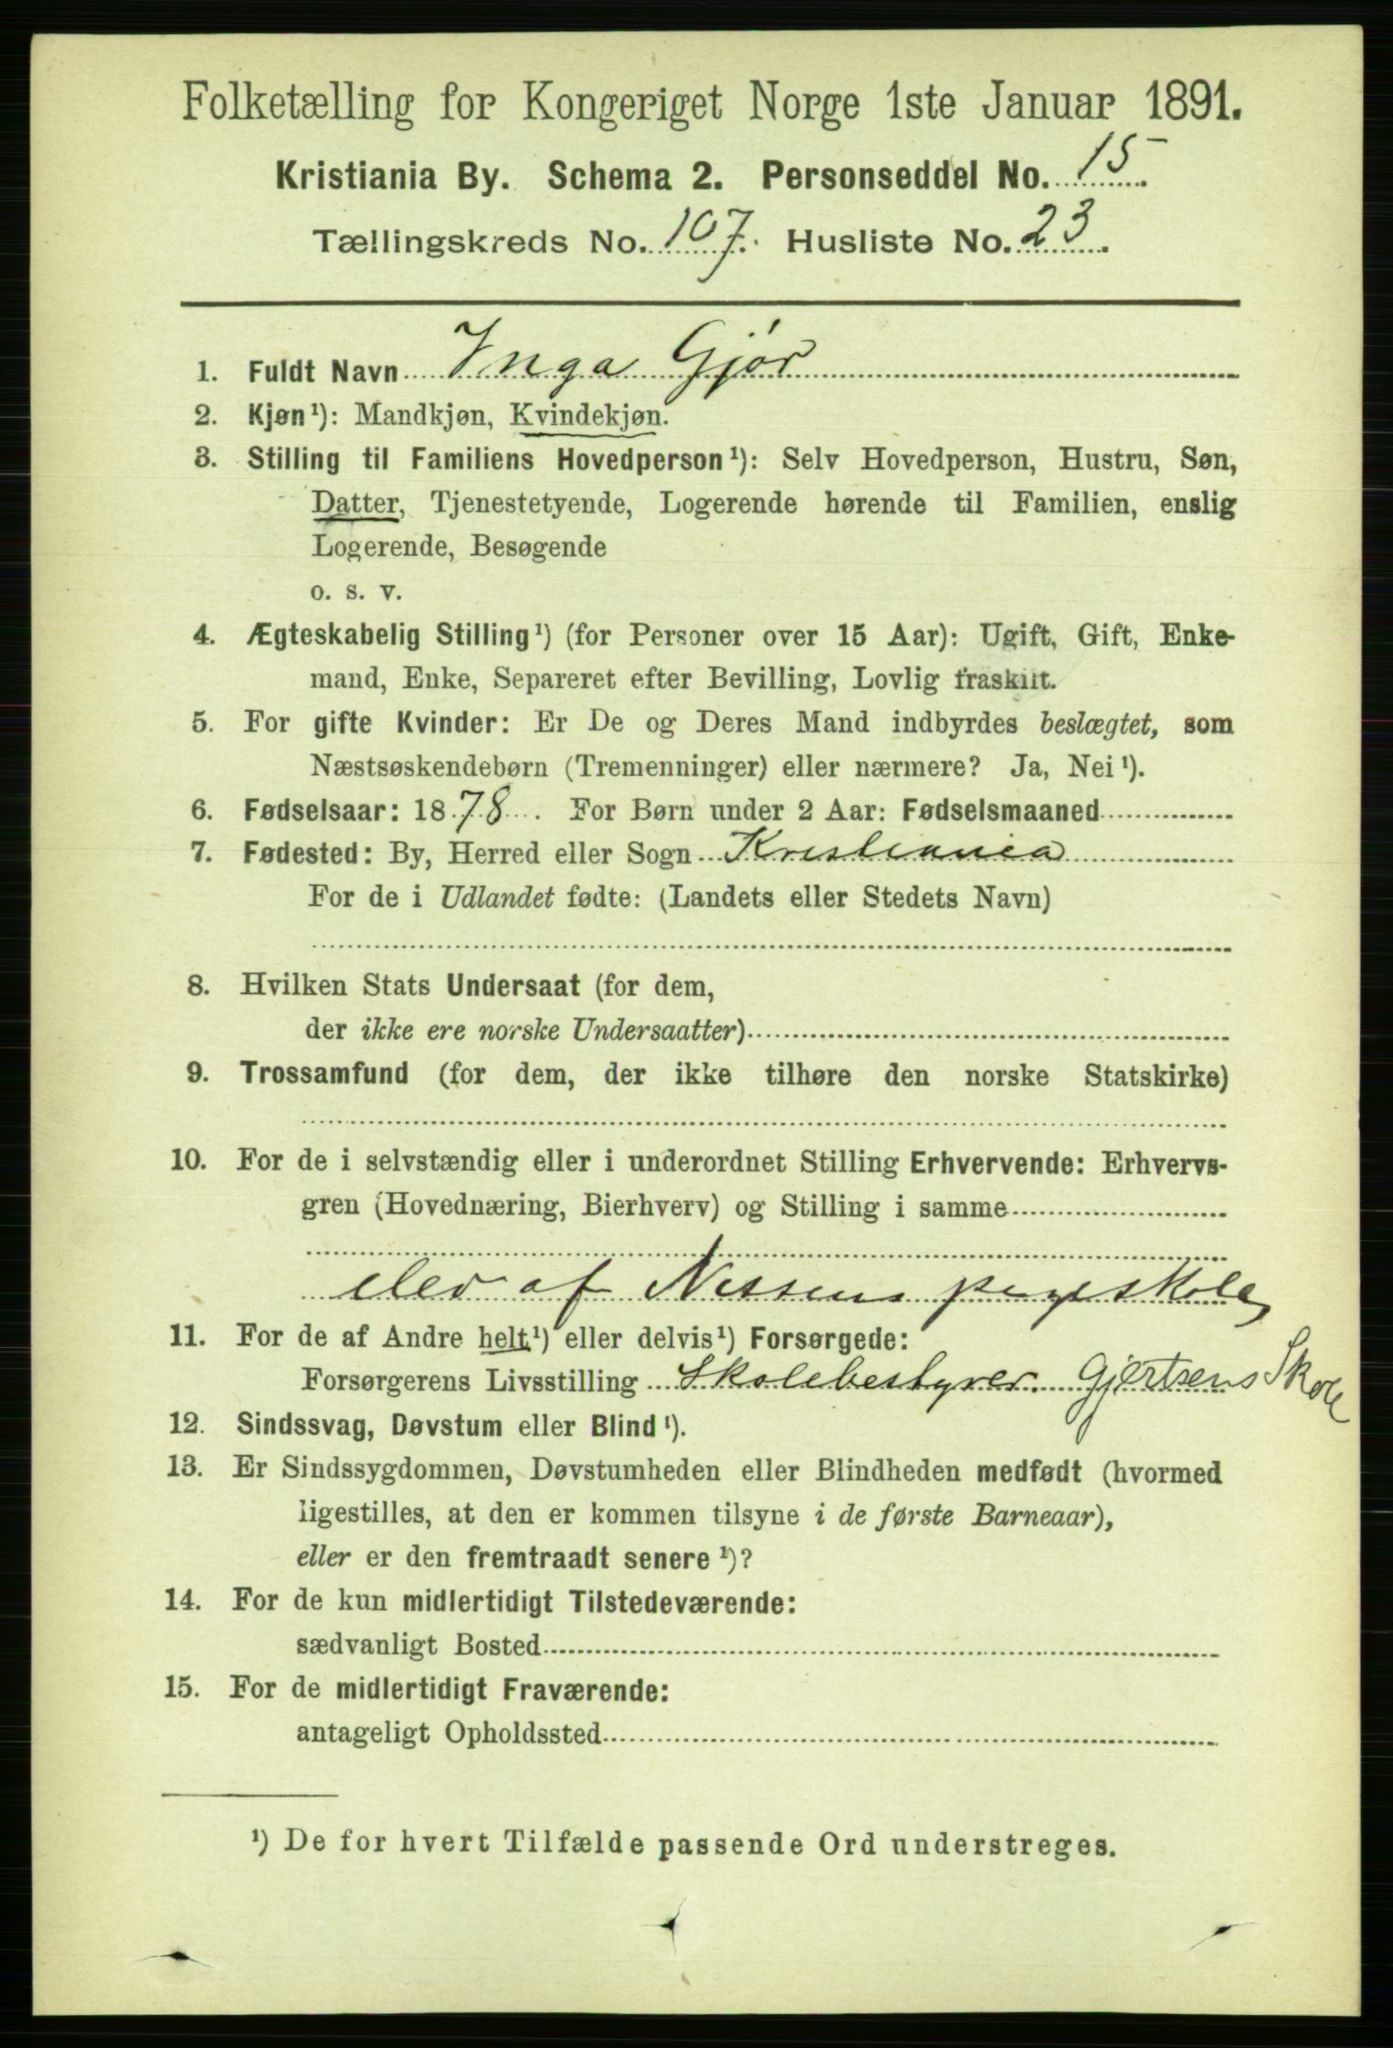 Folketælling for Kongeriget Norge 1ste Januar 1891.
Kristiania By. Schema 2. Personseddel No. 15
Tællingskreds No. 107. Husliste No. 23.
1. Fuldt Navn Inga Gjør
2. Kjøn¹): Mandkjøn, Kvindekjøn.
3. Stilling til Familiens Hovedperson¹): Selv Hovedperson, Hustru, Søn,
Datter, Tjenestetyende, Logerende hørende til Familien, enslig
Logerende, Besøgende
o. s. v.
4. Ægteskabelig Stilling¹) (for Personer over 15 Aar): Ugift, Gift, Enke-
mand, Enke, Separeret efter Bevilling, Lovlig fraskilt.
5. For gifte Kvinder: Er De og Deres Mand indbyrdes beslægtet, som
Næstsøskendebørn (Tremenninger) eller nærmere? Ja, Nei¹).
6. Fødselsaar: 1878. For Børn under 2 Aar: Fødselsmaaned
7. Fødested: By, Herred eller Sogn Kristiania
For de i Udlandet fødte: (Landets eller Stedets Navn)
8. Hvilken Stats Undersaat (for dem,
der ikke ere norske Undersaatter)
9. Trossamfund (for dem, der ikke tilhøre den norske Statskirke)
10. For de i selvstændig eller i underordnet Stilling Erhvervende: Erhvervs-
gren (Hovednæring, Bierhverv) og Stilling i samme
elev af Nissens pigeskole
11. For de af Andre helt¹) eller delvis¹) Forsørgede:
Forsørgerens Livsstilling Skolebestyrer. Gjertsens Skole
12. Sindssvag, Døvstum eller Blind¹).
13. Er Sindssygdommen, Døvstumheden eller Blindheden medfødt (hvormed
ligestilles, at den er kommen tilsyne i de første Barneaar),
eller er den fremtraadt senere¹)?
14. For de kun midlertidigt Tilstedeværende:
sædvanligt Bosted
15. For de midlertidigt Fraværende:
antageligt Opholdssted
¹) De for hvert Tilfælde passende Ord understreges.